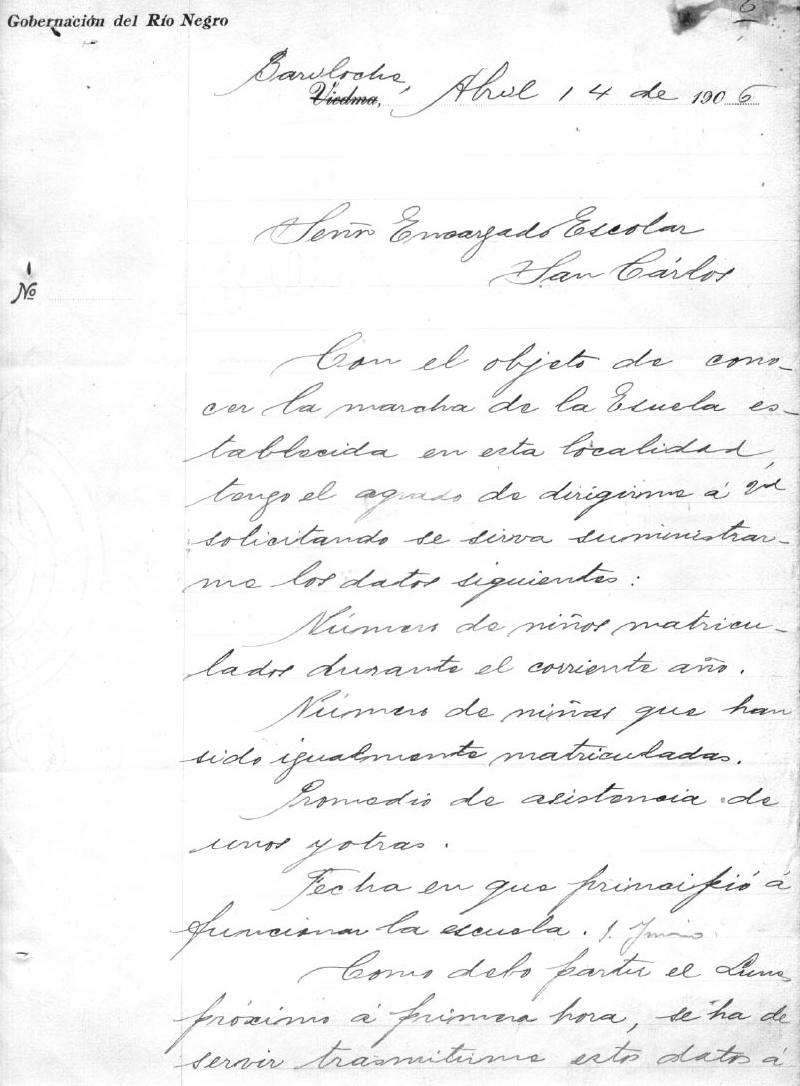 6
Gobernación del Río Negro
Bariloche,
Viedma, Abril 14 de 1906
Señor Encargado Escolar
San Cárlos
Nº
Con el objeto de cono-
cer la marcha de la Escuela es-
tablecida en esta localidad,
tengo el agrado de dirigirme á Vd
solicitando se sirva suministrar-
me los datos siguientes:
Número de niños matricu-
lados durante el corriente año.
Número de niñas que han
sido igualmente matriculadas.
Promedio de asistencia de
unos y otras.
Fecha en que principió á
funcionar la escuela. 1. Junio.
Como debo partir el Lunes
próximo á primera hora, se ha de
servir trasmitirme estos datos á